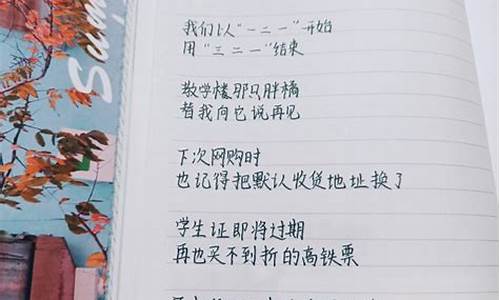 我们以“一二一”开始
用“三二一”结束
教学楼那只胖橘
替我向它说再见
下次网购时
也记得把默认收货地址换了
学生证即将过期
再也买不到折的高铁票